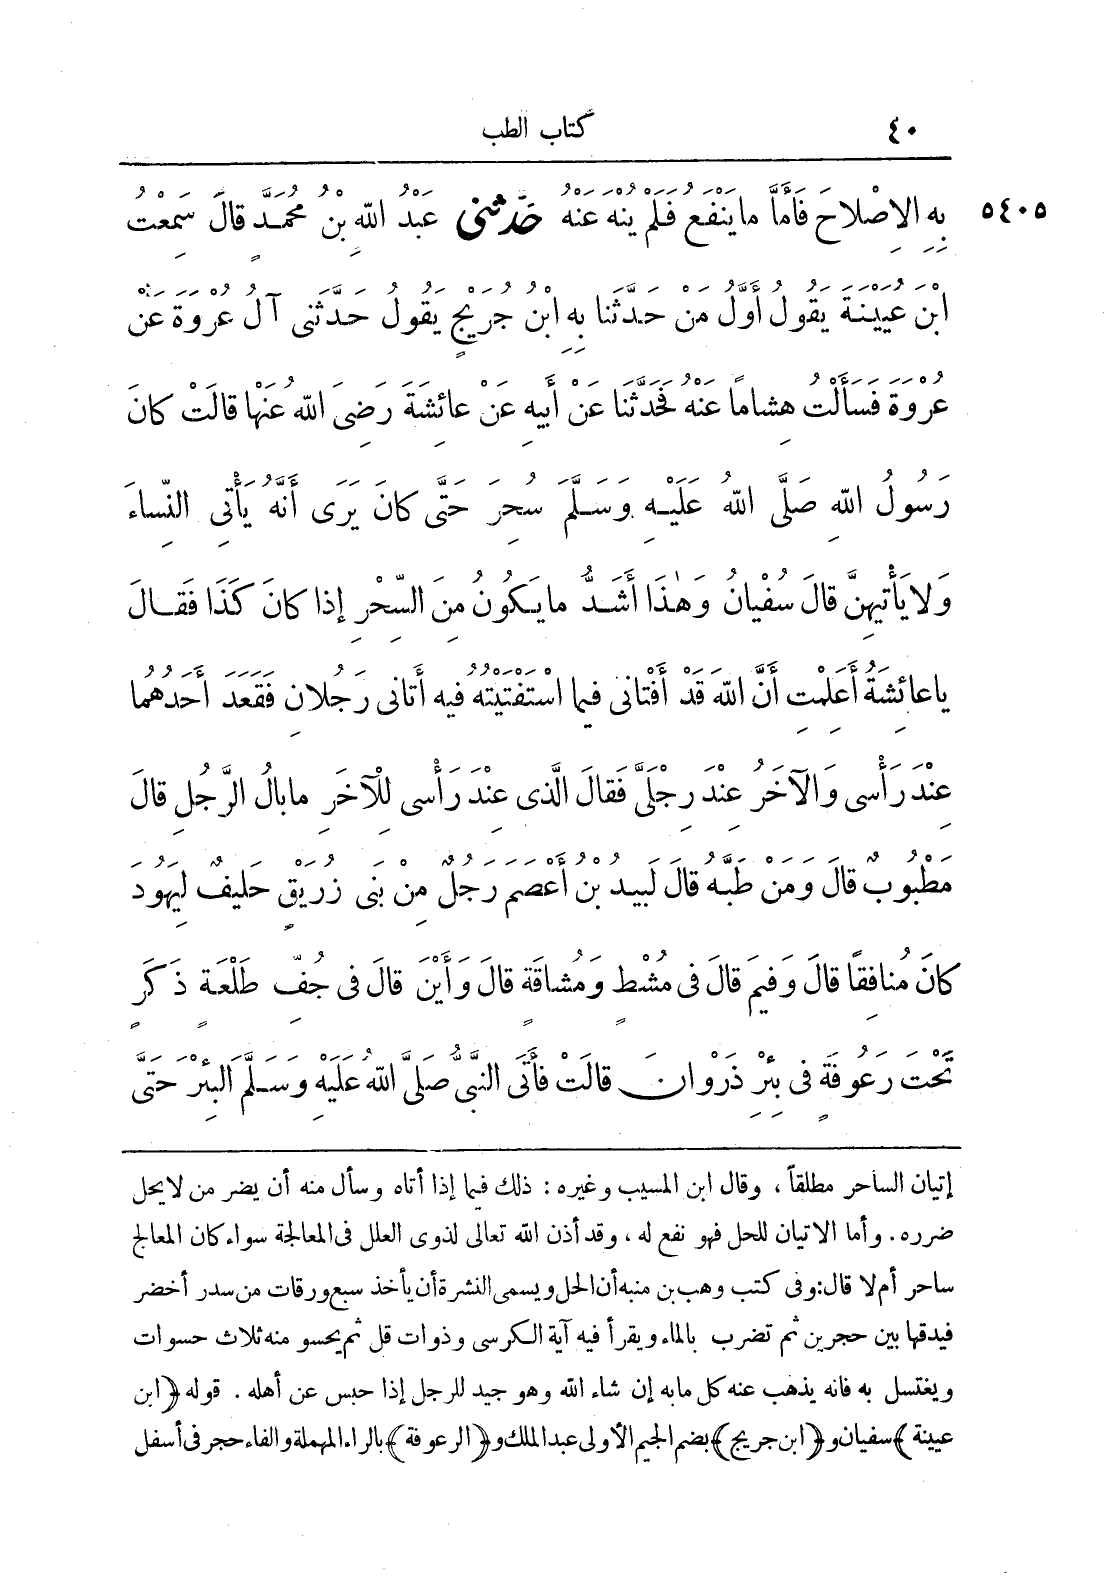 ٤٠ كتاب الطب
بِهِ الإِصْلاَحَ فَأَمَّا مَا يَنْفَعُ فَلَمْ يُنْهَ عَنْهُ حَدَّثَنِى عَبْدُ اللهِ بْنُ مُحَمَّدٍ قَالَ سَمِعْتُ ٥٤٠٥
ابْنَ عُيَيْنَةَ يَقُولُ أَوَّلُ مَنْ حَدَّثَنَا بِهِ ابْنُ جُرَيْجٍ يَقُولُ حَدَّثَنِى آلُ عُرْوَةَ عَنْ
عُرْوَةَ فَسَأَلْتُ هِشَاماً عَنْهُ فَحَدَّثَنَا عَنْ أَبِيهِ عَنْ عَائِشَةَ رَضِىَ اللهُ عَنْهَا قَالَتْ كَانَ
رَسُولُ اللهِ صَلَّى اللهُ عَلَيْهِ وَسَلَّمَ سُحِرَ حَتَّى كَانَ يَرَى أَنَّهُ يَأْتِى النِّسَاءَ
وَلَا يَأْتِيهِنَّ قَالَ سُفْيَانُ وَهٰذَا أَشَدُّ مَا يَكُونُ مِنَ السِّحْرِ إِذَا كَانَ كَذَا فَقَالَ
يَا عَائِشَةُ أَعَلِمْتِ أَنَّ اللهَ قَدْ أَفْتَانِى فِيمَا اسْتَفْتَيْتُهُ فِيهِ أَتَانِى رَجُلَانِ فَقَعَدَ أَحَدُهُمَا
عِنْدَ رَأْسِى وَالْآخَرُ عِنْدَ رِجْلَىَّ فَقَالَ الَّذِى عِنْدَ رَأْسِى لِلْآخَرِ مَا بَالُ الرَّجُلِ قَالَ
مَطْبُوبٌ قَالَ وَمَنْ طَبَّهُ قَالَ لَبِيدُ بْنُ أَعْصَمَ رَجُلٌ مِنْ بَنِى زُرَيْقٍ حَلِيفٌ لِيَهُودَ
كَانَ مُنَافِقًا قَالَ وَفِيمَ قَالَ فِى مُشْطٍ وَمُشَاقَةٍ قَالَ وَأَيْنَ قَالَ فِى جُفِّ طَلْعَةٍ ذَكَرٍ
تَحْتَ رَعُوفَةٍ فِى بِئْرِ ذَرْوَانَ قَالَتْ فَأَتَى النَّبِىُّ صَلَّى اللهُ عَلَيْهِ وَسَلَّمَ الْبِئْرَ حَتَّى
إتيان الساحر مطلقاً ، وقال ابن المسيب وغيره : ذلك فيما إذا أتاه وسأل منه أن يضر من لا يحل
ضرره . وأما الاتيان للحل فهو نفع له ، وقد أذن الله تعالى لذوى العلل فى المعالجة سواء كان المعالج
ساحر أم لا قال: وفى كتب وهب بن منبه أن الحل ويسمى النشرة أن يأخذ سبع ورقات من سدر أخضر
فيدقها بين حجرين ثم تضرب بالماء ويقرأ فيه آية الكرسى وذوات قل ثم يحسو منه ثلاث حسوات
ويغتسل به فانه يذهب عنه كل ما به إن شاء الله وهو جيد للرجل إذا حبس عن أهله . قوله ﴿ابن
عيينة﴾ سفيان و ﴿ابن جريج﴾ بضم الجيم الأولى عبد الملك و ﴿الرعوفة﴾ بالراء المهملة والفاء حجر فى أسفل